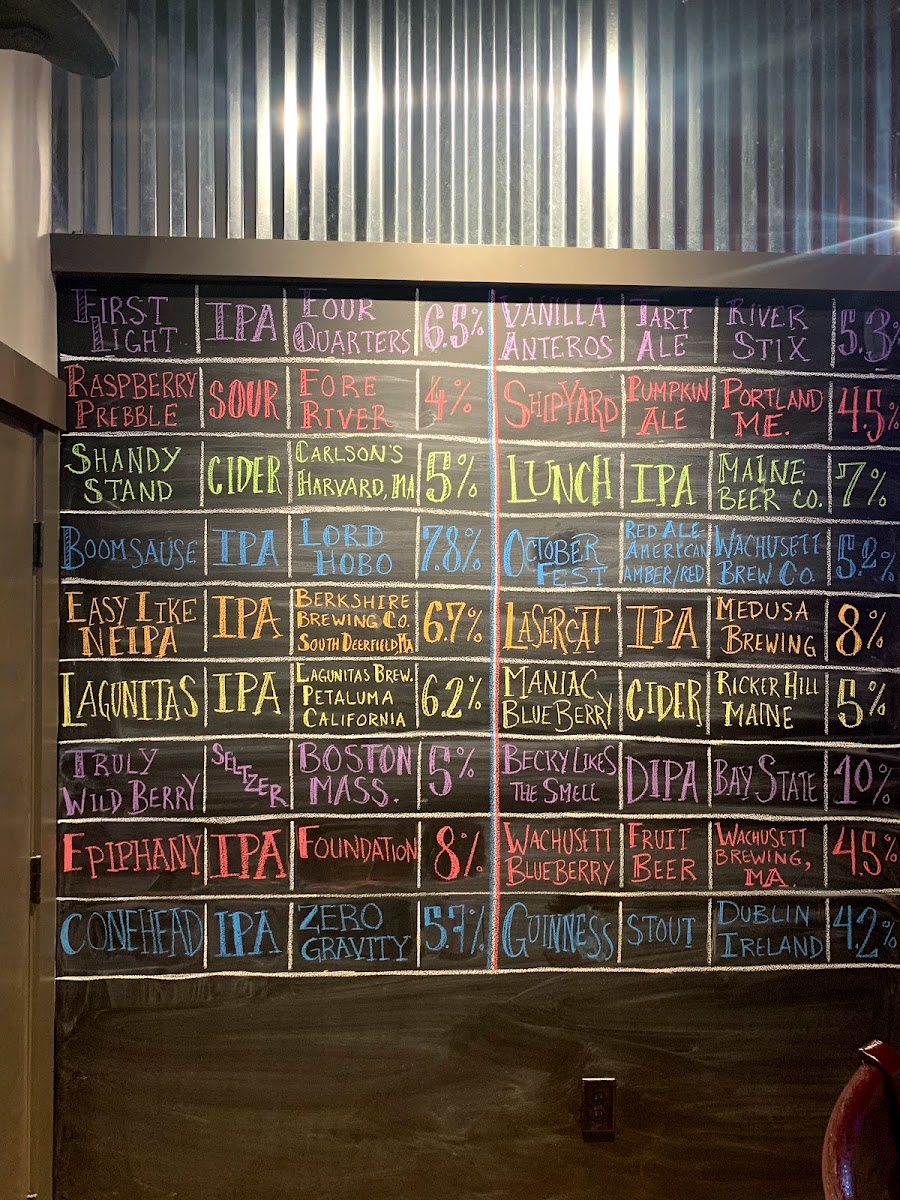 FIRST LIGHT IPA FOUR QUARTERS 6.5%
RASPBERRY PREBBLE SOUR FORE RIVER 4%
SHANDY STAND CIDER CARLSON'S HARVARD, MA 5%
BOOMSAUSE IPA LORD HOBO 7.8%
EASY LIKE NEIPA IPA BERKSHIRE BREWING CO. SOUTH DEERFIELD MA 6.7%
LAGUNITAS IPA LAGUNITAS BREW. PETALUMA CALIFORNIA 6.2%
TRULY WILD BERRY SELTZER BOSTON MASS. 5%
EPIPHANY IPA FOUNDATION 8%
CONEHEAD IPA ZERO GRAVITY 5.7%
VANILLA ANTEROS TART ALE RIVER STIX 5.3%
SHIPYARD PUMPKIN ALE PORTLAND ME. 4.5%
LUNCH IPA MAINE BEER CO. 7%
OCTOBER FEST RED ALE AMERICAN AMBER/RED WACHUSETT BREW CO. 5.2%
LASERCAT IPA MEDUSA BREWING 8%
MANIAC BLUEBERRY CIDER RICKER HILL MAINE 5%
BECKY LIKES THE SMELL DIPA BAY STATE 10%
WACHUSETT BLUEBERRY FRUIT BEER WACHUSETT BREWING, MA. 4.5%
GUINNESS STOUT DUBLIN IRELAND 4.2%